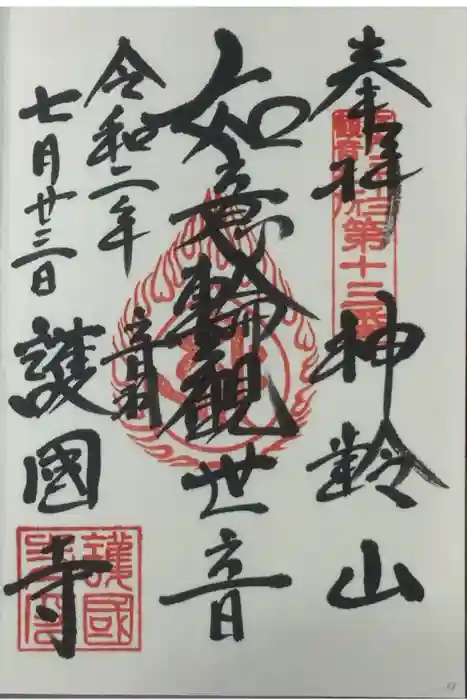 奉拝 神齢山
第十三番
如意輪観世音
令和二年
七月廿三日
音羽
護國寺
護國